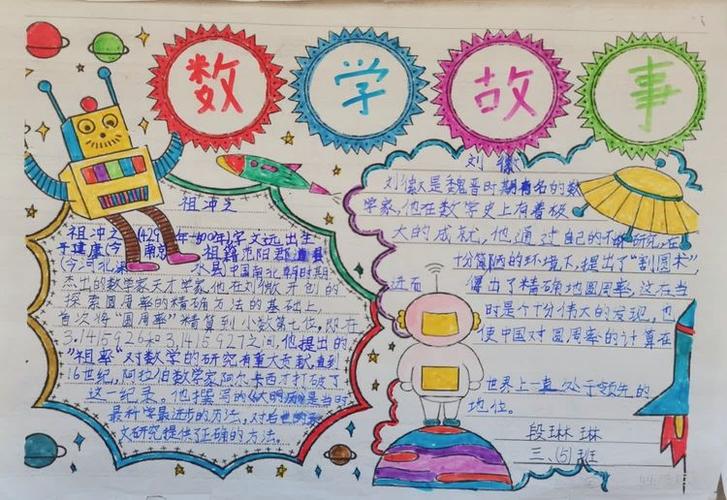 数学故事
祖冲之
祖冲之(429年-500年)字文远出生
于建康(今南京)祖籍范阳郡遒县
(今河北涞水县)中国南北朝时期
杰出的数学家天才学家,他在刘徽开创的
探索圆周率的精确方法的基础上,
首次将"圆周率"精算到小数第七位,即在
3.1415926和3.1415927之间,他提出的
"祖率"对数学的研究有重大贡献,直到
16世纪,阿拉伯数学家阿尔卡西才打破了
这一纪录。他撰写的《大明历》是当时
最科学最进步的历法,对后世的
文研究提供了正确的方法。
刘徽
刘徽是魏晋时期有名的数
学家,他在数学史上有着极
大的成就,他通过自己的不断研究,在
十分简陋的环境下,提出了"割圆术",
进而得出了精确地圆周率,这在当
时是个十分伟大的发现,也
使中国对圆周率的计算在
世界上一直处于领先的
地位。
段琳琳
三、(5)班